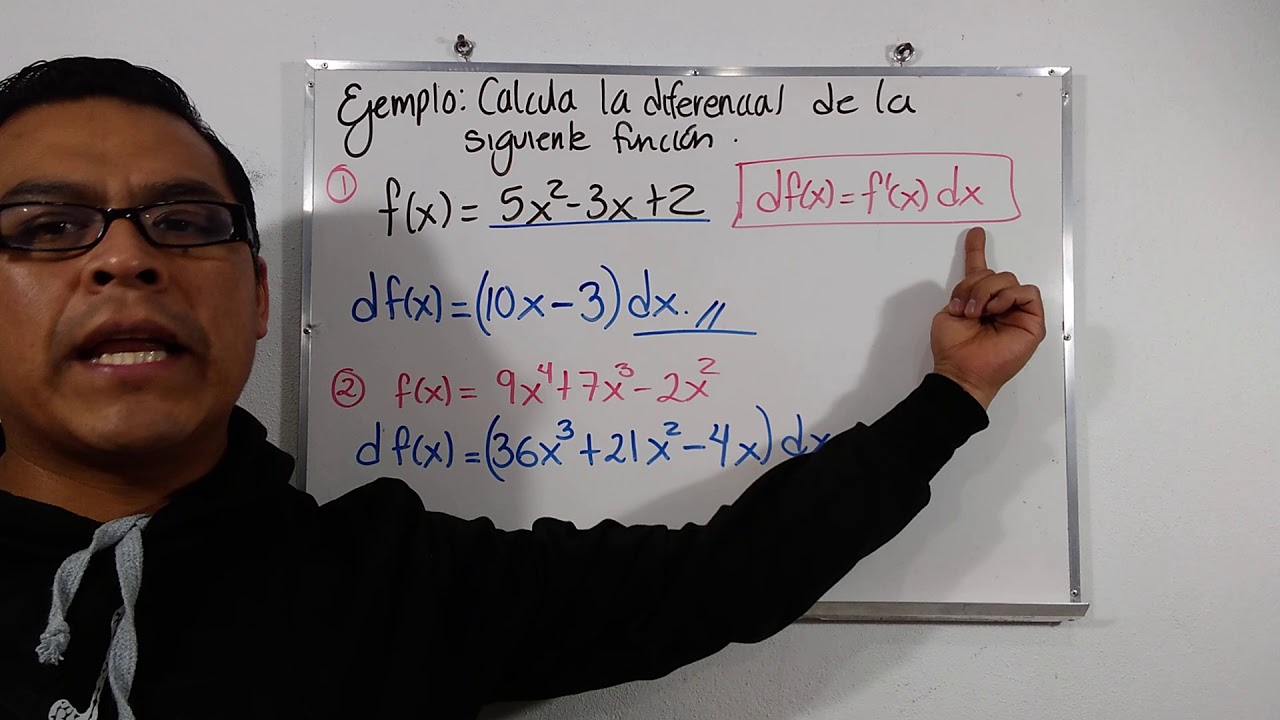 Ejemplo: Calcula la diferencial de la
siguiente función.
① f(x) = 5x²-3x+2
df(x) = f'(x) dx
df(x) = (10x-3) dx. //
② f(x) = 9x⁴+7x³-2x²
df(x) = (36x³+21x²-4x) dx